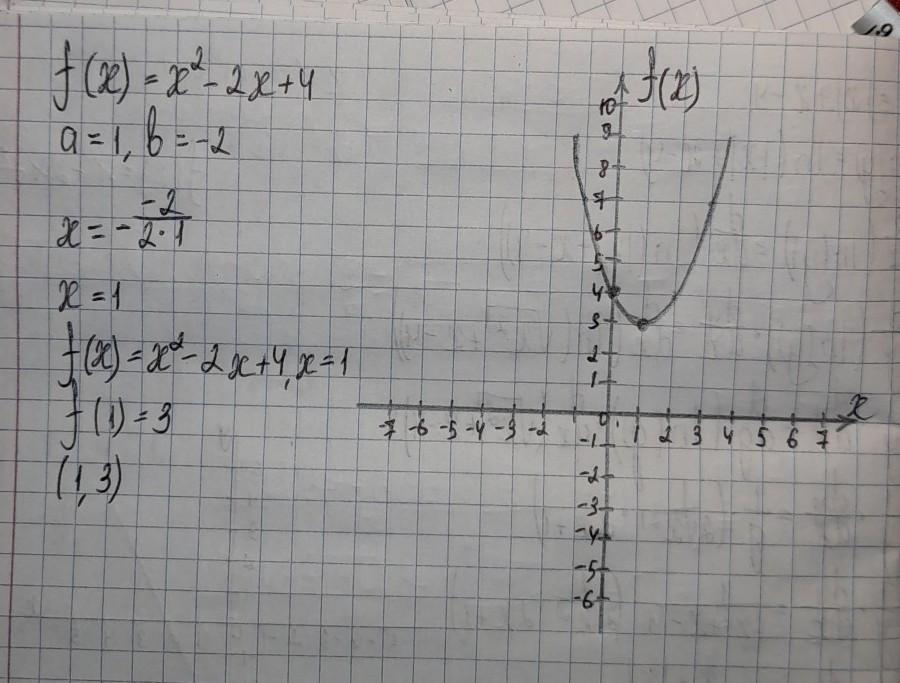 f(x) = x² - 2x + 4
a = 1, b = -2
x = - -2 / 2·1
x = 1
f(x) = x² - 2x + 4, x = 1
f(1) = 3
(1, 3)
f(x)
10
9
8
7
6
5
4
3
2
1
-7 -6 -5 -4 -3 -2 0 1 2 3 4 5 6 7 x
-1
-2
-3
-4
-5
-6